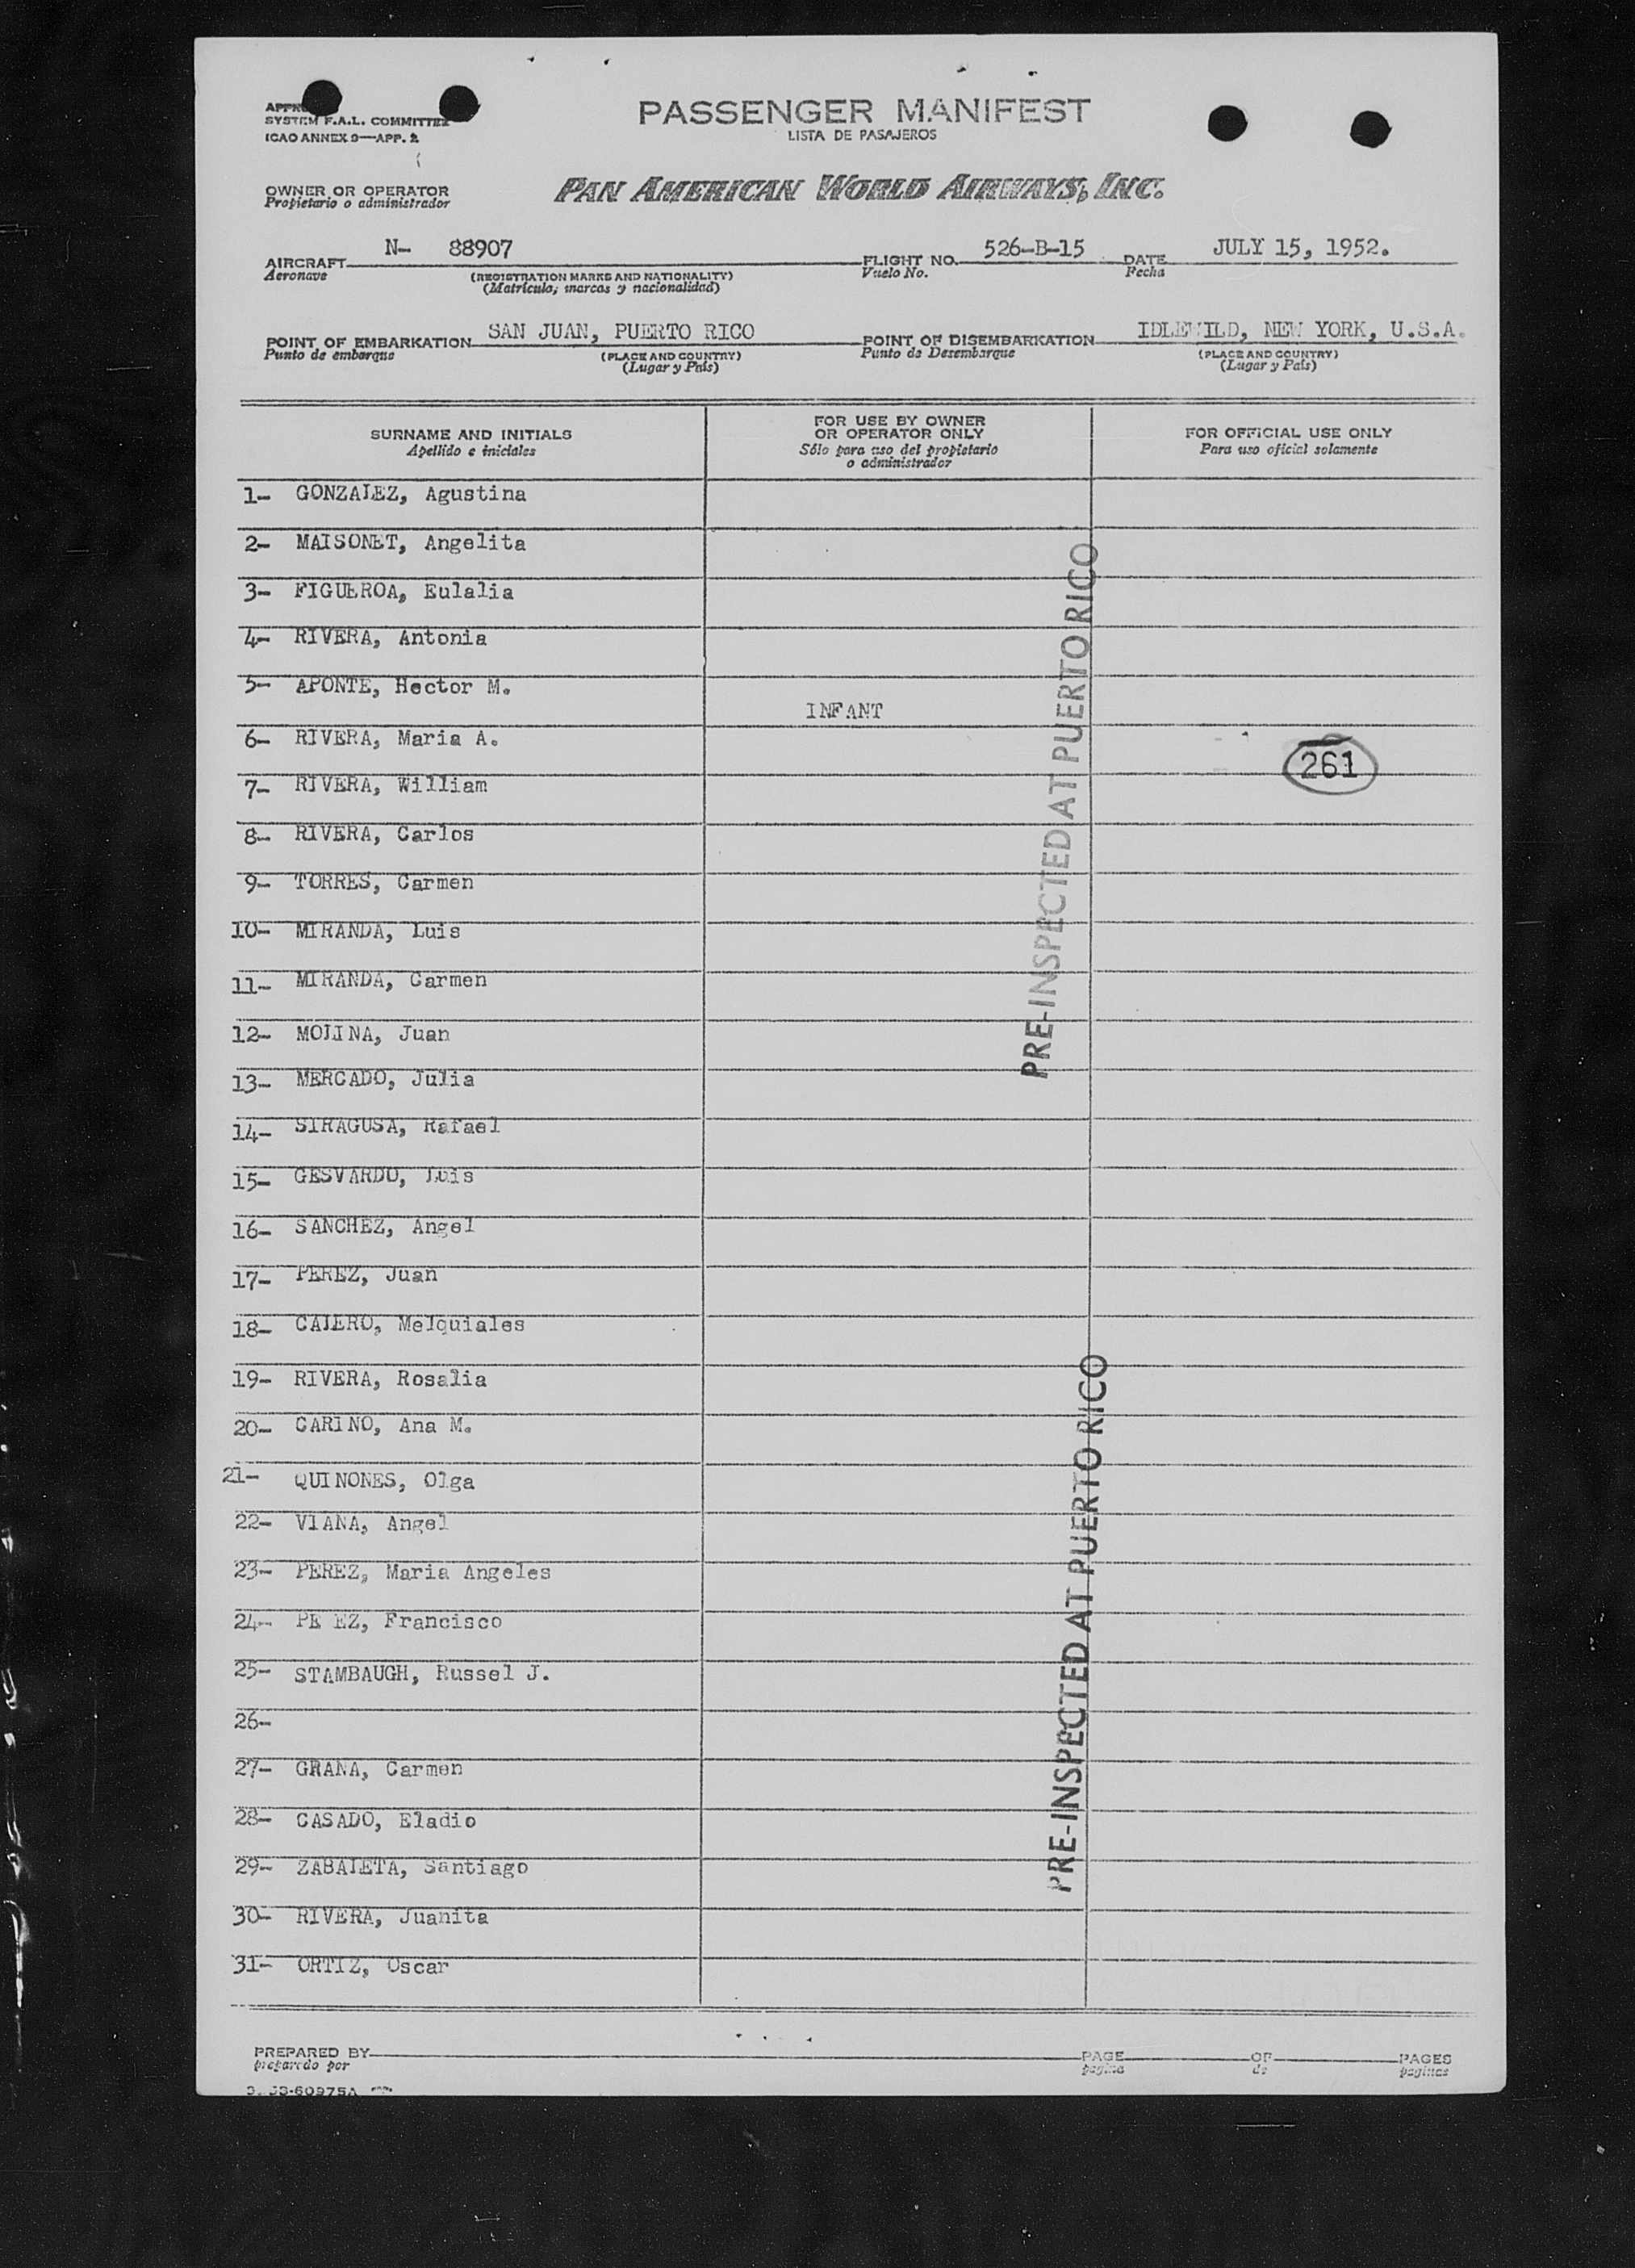 PASSENGER MANIFEST
LISTA DE PASAJEROS
SYSTEM F.A.L. COMMITTEE
ICAO ANNEX 9—APP. 2
OWNER OR OPERATOR
Propietario o administrador
PAN AMERICAN WORLD AIRWAYS, INC.
AIRCRAFT N- 88907 FLIGHT NO. 526-B-15 DATE JULY 15, 1952.
Aeronave (REGISTRATION MARKS AND NATIONALITY) Vuelo No. Fecha
(Matrícula, marcas y nacionalidad)
POINT OF EMBARKATION SAN JUAN, PUERTO RICO POINT OF DISEMBARKATION IDLEWILD, NEW YORK, U.S.A.
Punto de embarque (PLACE AND COUNTRY) Punto de Desembarque (PLACE AND COUNTRY)
(Lugar y País) (Lugar y País)
SURNAME AND INITIALS
Apellido e iniciales
FOR USE BY OWNER
OR OPERATOR ONLY
Sólo para uso del propietario
o administrador
FOR OFFICIAL USE ONLY
Para uso oficial solamente
1- GONZALEZ, Agustina
2- MAISONET, Angelita
3- FIGUEROA, Eulalia
4- RIVERA, Antonia
5- APONTE, Hector M.
INFANT
6- RIVERA, Maria A.
261
7- RIVERA, William
8- RIVERA, Carlos
9- TORRES, Carmen
10- MIRANDA, Luis
11- MIRANDA, Carmen
12- MOLINA, Juan
13- MERCADO, Julia
14- SIRAGUSA, Rafael
15- GESVARDO, Luis
16- SANCHEZ, Angel
17- PEREZ, Juan
18- CALERO, Melquiales
19- RIVERA, Rosalia
20- CARINO, Ana M.
21- QUINONES, Olga
22- VIANA, Angel
23- PEREZ, Maria Angeles
24- PE EZ, Francisco
25- STAMBAUGH, Russel J.
26-
27- GRANA, Carmen
28- CASADO, Eladio
29- ZABALETA, Santiago
30- RIVERA, Juanita
31- ORTIZ, Oscar
PRE-INSPECTED AT PUERTO RICO
PRE-INSPECTED AT PUERTO RICO
PREPARED BY PAGE OF PAGES
preparado por pagina de paginas